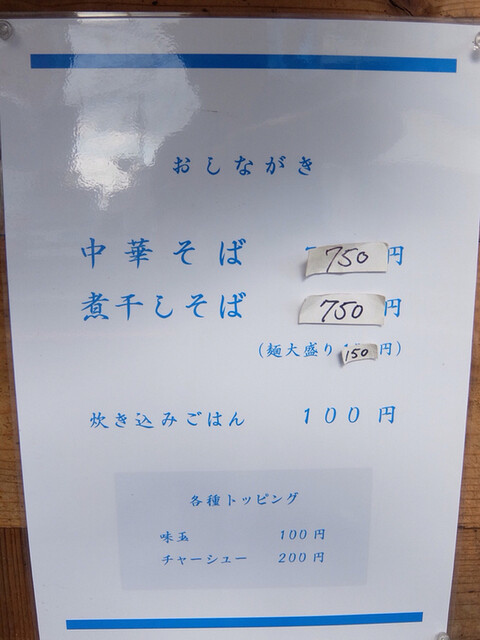 おしながき
中華そば 750円
煮干しそば 750円
(麺大盛り 150円)
炊き込みごはん 100円
各種トッピング
味玉 100円
チャーシュー 200円